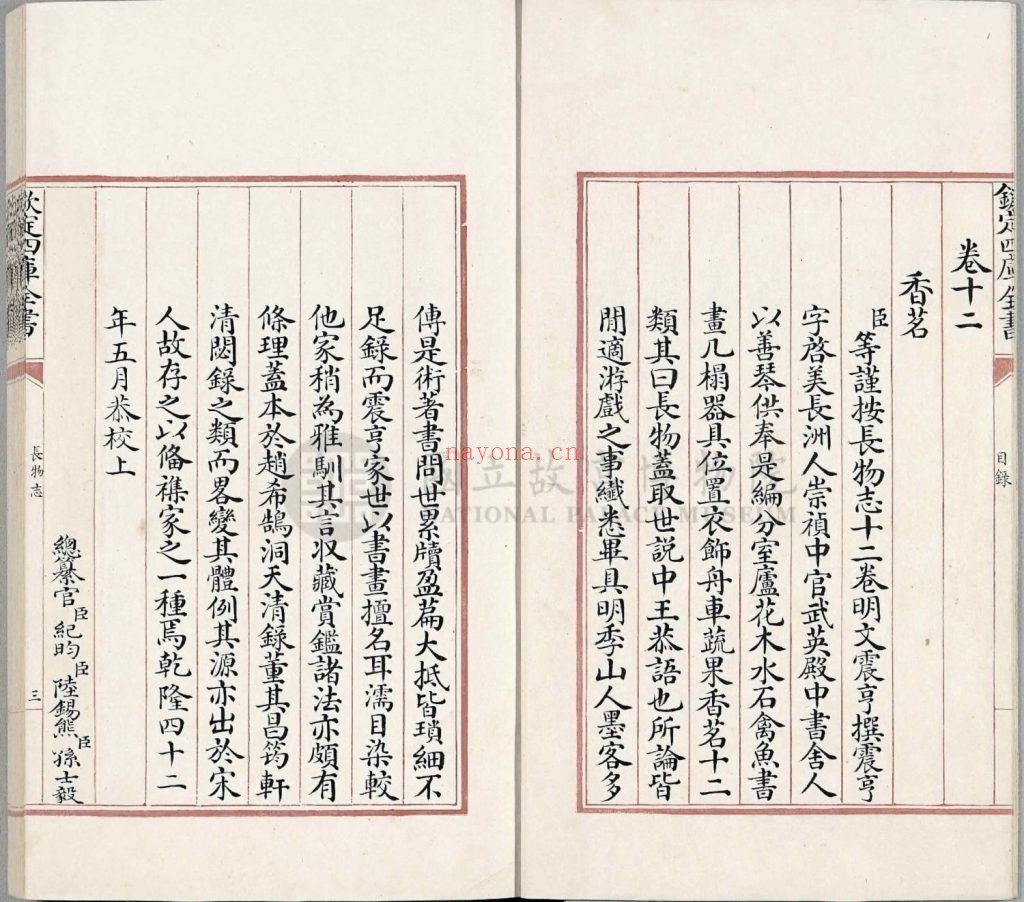 欽定四庫全書
卷十二
香茗
臣等謹按長物志十二卷明文震亨撰震亨
字啓美長洲人崇禎中官武英殿中書舍人
以善琴供奉是編分室廬花木水石禽魚書
畫几榻器具位置衣飾舟車蔬果香茗十二
類其曰長物蓋取世說中王恭語也所論皆
閒適游戲之事纖悉畢具明季山人墨客多
目錄
傳是術著書問世累牘盈篇大抵皆瑣細不
足錄而震亨家世以書畫擅名耳濡目染較
他家稍為雅馴其言収藏賞鑑諸法亦頗有
條理蓋本於趙希鵠洞天清錄董其昌筠軒
清閟錄之類而畧變其體例其源亦出於宋
人故存之以俻襍家之一種焉乾隆四十二
年五月恭校上
總纂官臣紀昀臣陸錫熊臣孫士毅
欽定四庫全書
長物志
三
國立故宮博物院
NATIONAL PALACE MUSEUM
nayona.cn